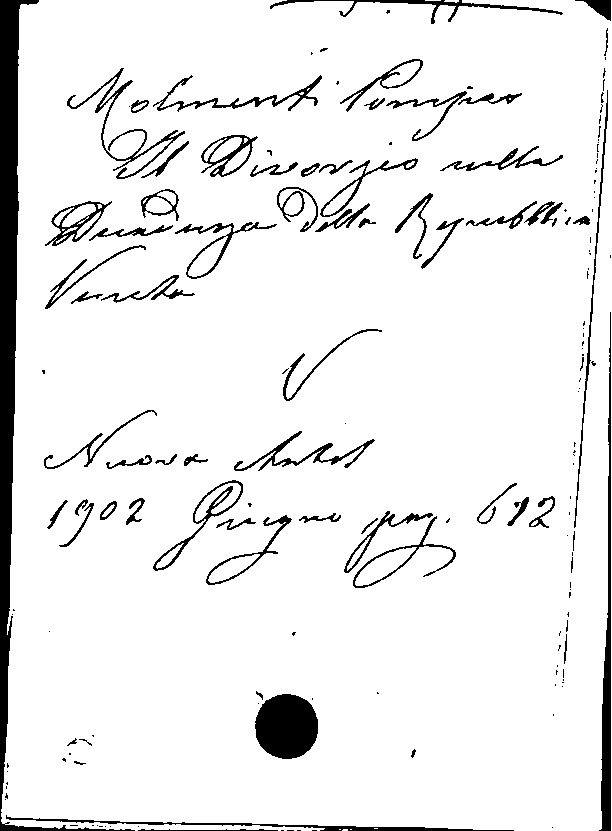 Molmenti Pompeo
Il Divorzio nella
Decadenza della Repubblica
Veneta
V
Nuova Antol
1902 Giugno pag. 692